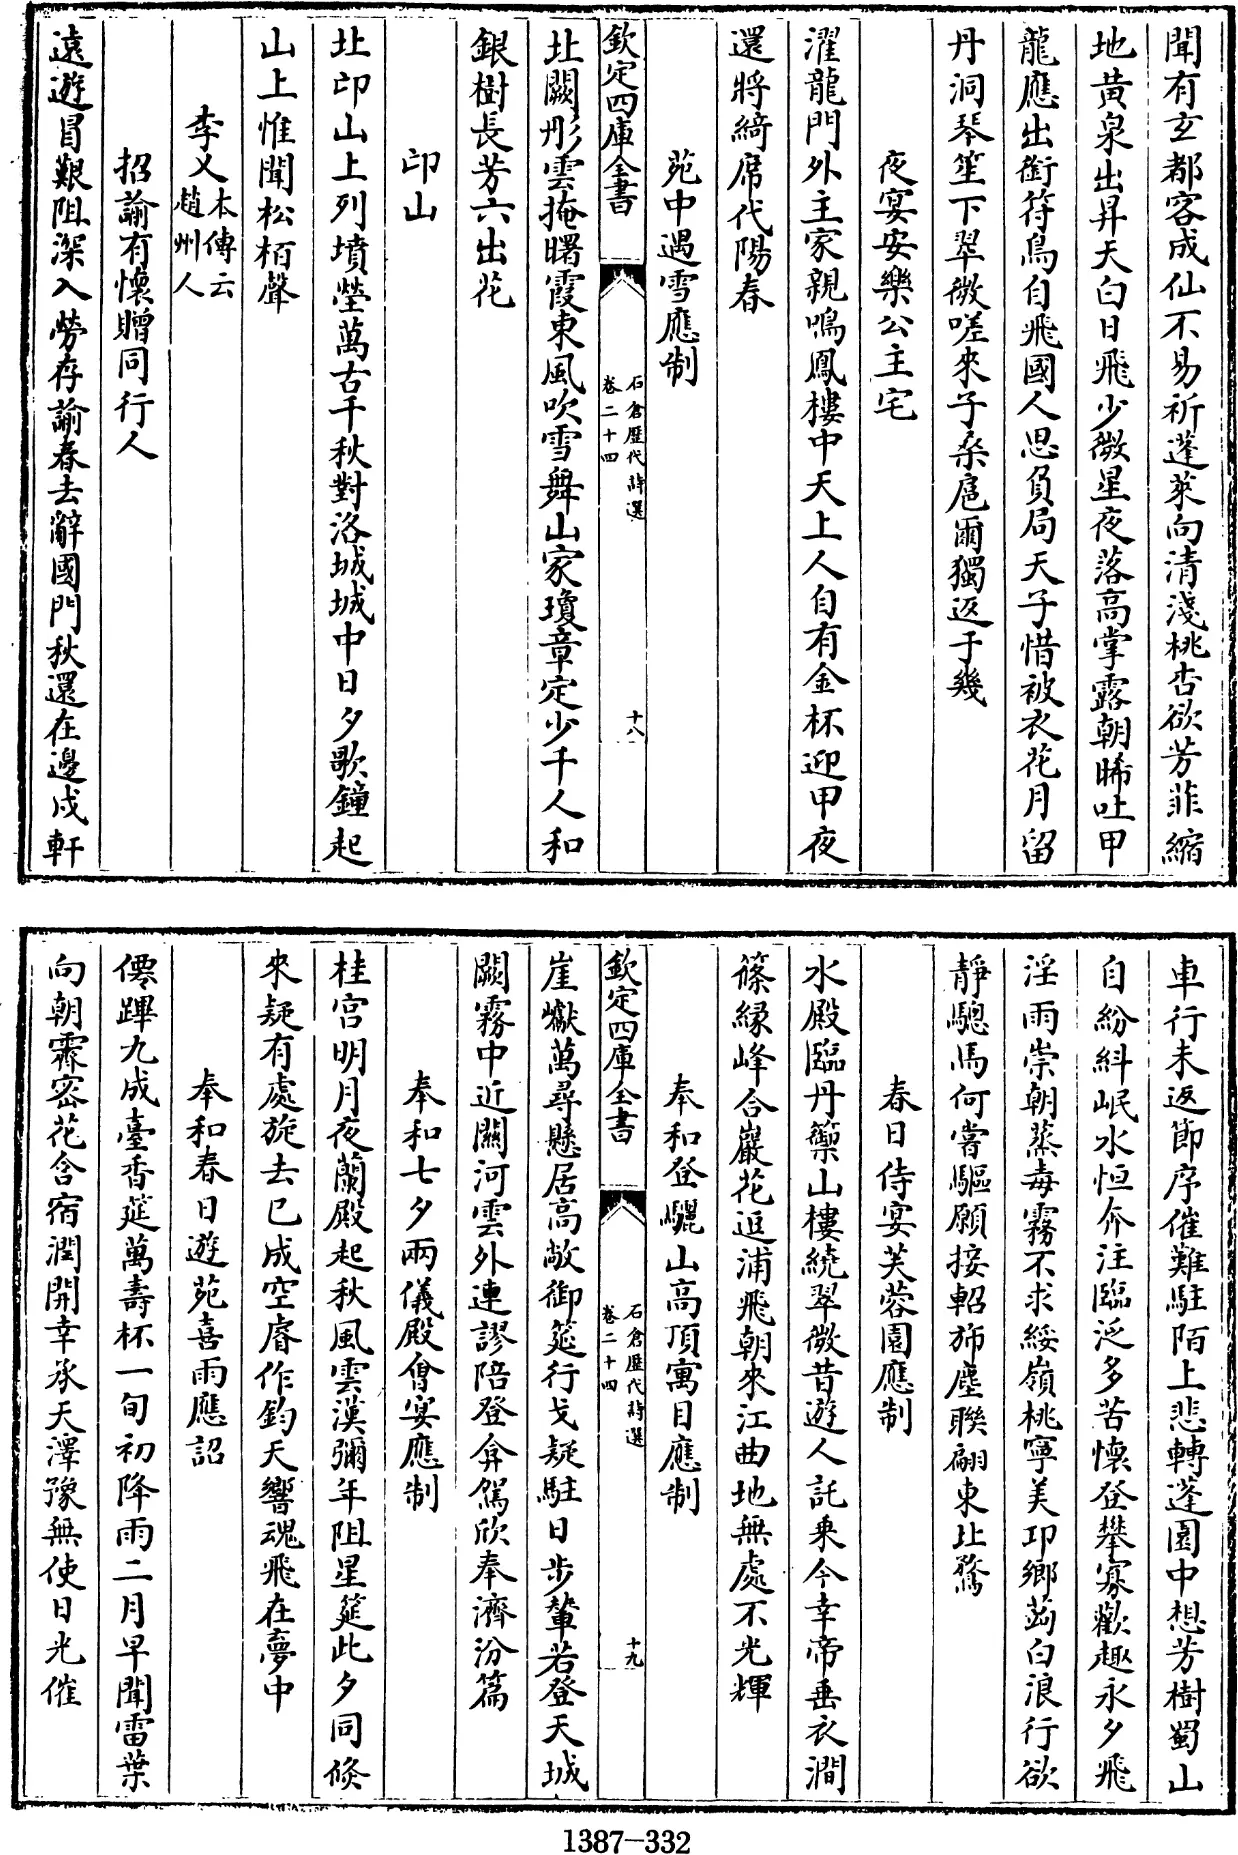 聞有玄都客成仙不易祈蓬萊向清淺桃杏欲芳菲縮
地黄泉出昇天白日飛少微星夜落高掌露朝晞吐甲
龍應出銜符鳥自飛國人思負局天子惜被衣花月留
丹洞琴笙下翠微嗟來子桑扈爾獨返于幾
夜宴安樂公主宅
濯龍門外主家親鳴鳳樓中天上人自有金杯迎甲夜
還將綺席代陽春
苑中遇雪應制
欽定四庫全書
石倉歷代詩選
卷二十四
十八
北闕彤雲掩曙霞東風吹雪舞山家瓊章定少千人和
銀樹長芳六出花
卭山
北卭山上列墳塋萬古千秋對洛城城中日夕歌鐘起
山上惟聞松栢聲
李乂本傳云趙州人
招諭有懷贈同行人
遠遊冒艱阻深入勞存諭春去辭國門秋還在邊戍軒
車行未返節序催難駐陌上悲轉蓬園中想芳樹蜀山
自紛糾岷水恒奔注臨泛多苦懷登攀寡歡趣永夕飛
淫雨崇朝蒸毒霧不求綏嶺桃寧美卭鄉蒟白浪行欲
靜驄馬何嘗驅願接軺斾塵聯翩東北騖
春日侍宴芙蓉園應制
水殿臨丹籞山樓繞翠微昔遊人託乘今幸帝垂衣澗
篠緣峰合巖花逗浦飛朝來江曲地無處不光輝
奉和登驪山高頂寓目應制
欽定四庫全書
石倉歷代詩選
卷二十四
十九
崖巘萬尋懸居高敞御筵行戈疑駐日步輦若登天城
闕霧中近關河雲外連謬陪登弇駕欣奉濟汾篇
奉和七夕兩儀殿會宴應制
桂宮明月夜蘭殿起秋風雲漢彌年阻星筵此夕同倏
來疑有處旋去已成空睿作鈞天響魂飛在夢中
奉和春日遊苑喜雨應詔
僊蹕九成臺香筵萬壽杯一旬初降雨二月早聞雷葉
向朝霽密花含宿潤開幸承天澤豫無使日光催
1387-332